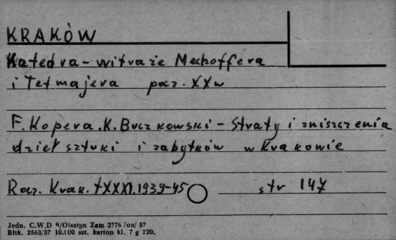 KRAKÓW
Katedra - witraże Mechoffera
i Tetmajera pocz. XX w
F. Kopera. K. Buczkowski - Straty i zniszczenia
dzieł sztuki i zabytków w Krakowie
Rocz. Krak. t XXXI. 1939-45 str 147
Jedn. C.W.D /Olsztyn Zam 2776 /on/ 57
Bltk. 3563/57 10.100 szt. karton kl. 7 g 220.